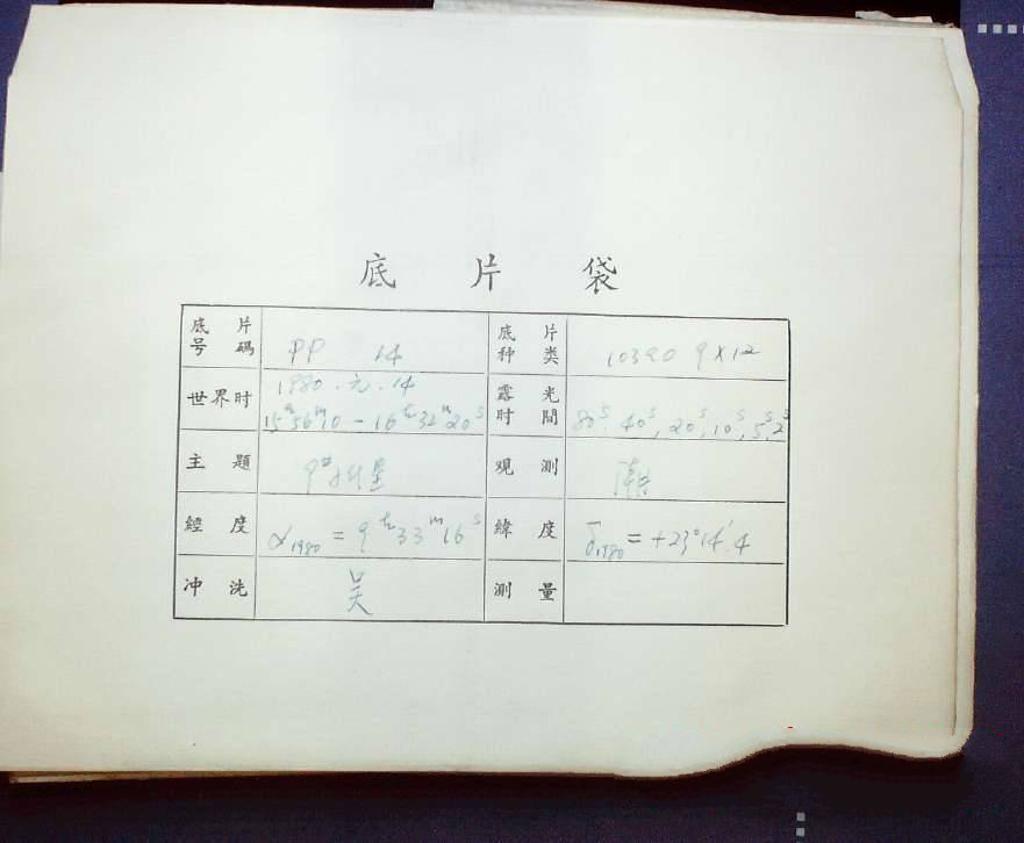 底 片 袋
底 片 号 碼 PP 14 底 片 种 类 10390 9×12
世界时 1980.元.14 15ʰ56ᵐ10 - 16ʰ32ᵐ20ˢ 露 光 时 間 80ˢ, 40ˢ, 20ˢ, 10ˢ, 5ˢ, 2ˢ
主 題 星 观 测
經 度 α1980 = 9ʰ33ᵐ16ˢ 緯 度 δ1980 = +23°14′.4
冲 洗 吴 測 量